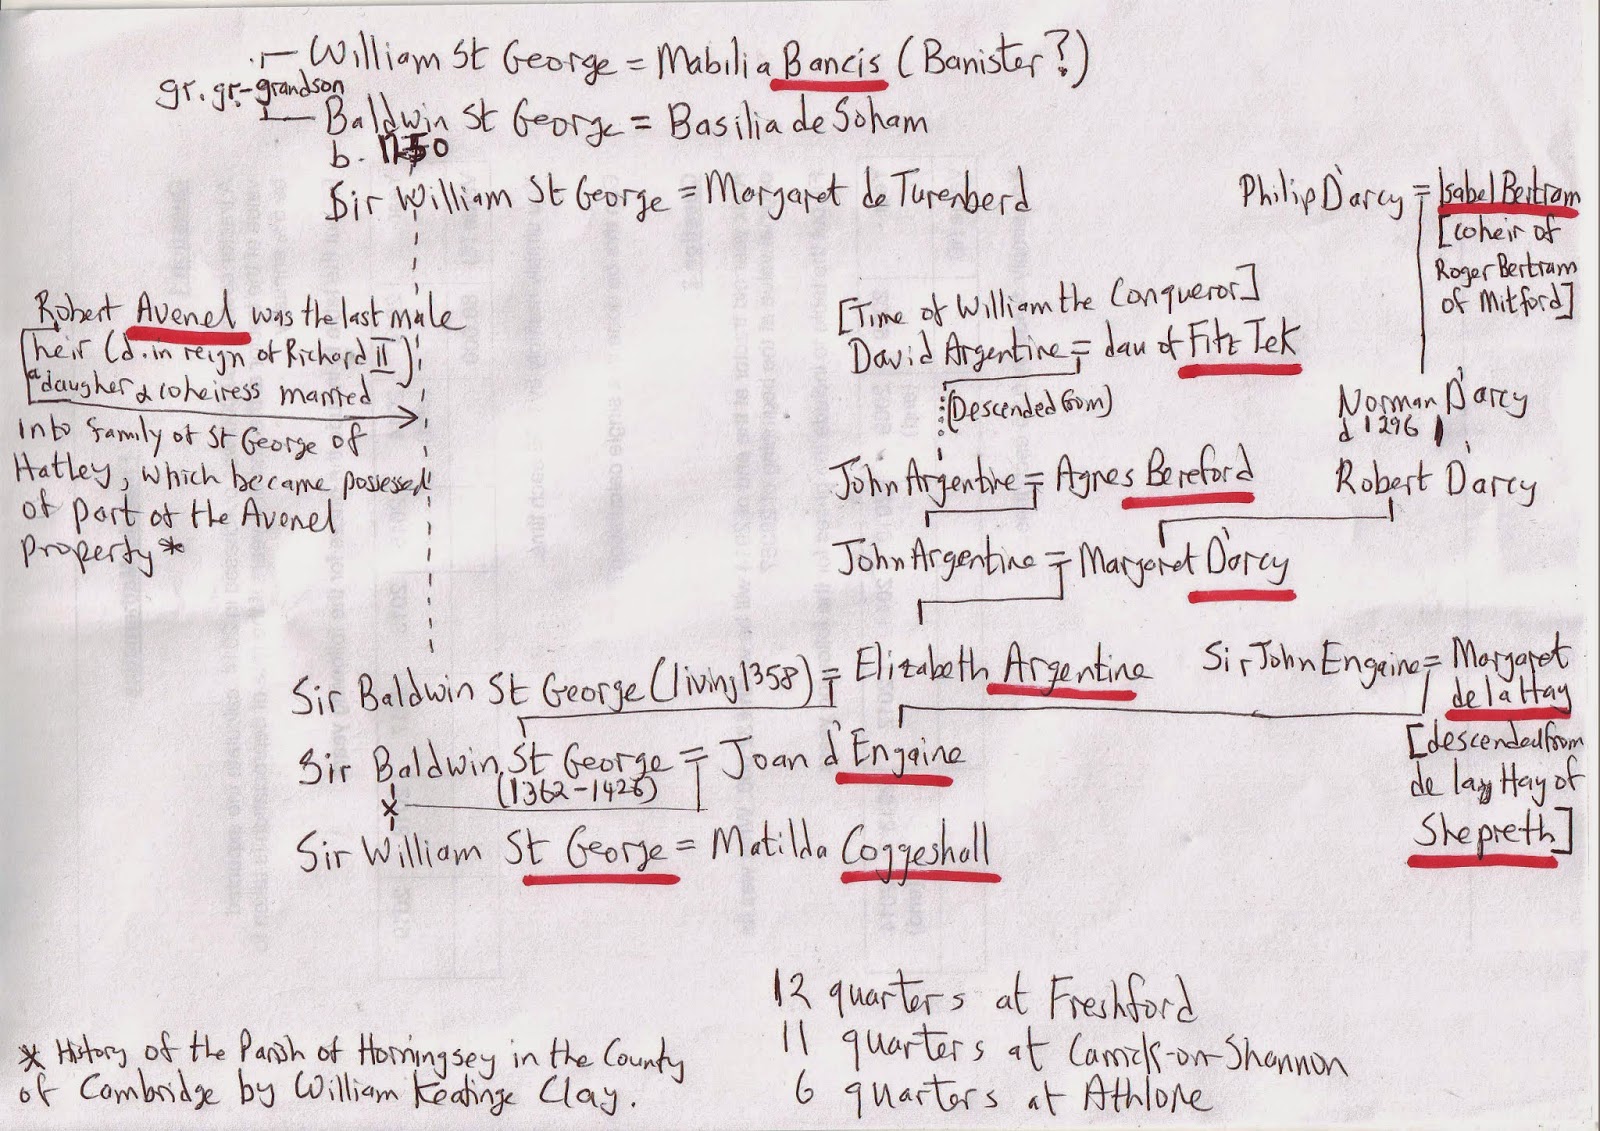 William St George = Mabilia Bancis (Banister?)
gr. gr-grandson
Baldwin St George = Basilia de Soham
b.
Sir William St George = Margaret de Turenberd
Philip D'arcy = Isabel Bertram
[coheir of
Roger Bertram
of Mitford]
Robert Avenel was the last male
heir (d. in reign of Richard II)
a daugher & coheiress married
into family of St George of
Hatley, which became possessed
of part of the Avenel
property *
[Time of William the Conqueror]
David Argentine = dau of Fitz Tek
(Descended from)
Norman D'arcy
d 1296
John Argentine = Agnes Bereford
Robert D'arcy
John Argentine = Margaret D'arcy
Sir Baldwin St George (living 1358) = Elizabeth Argentine
Sir John Engaine = Margaret
de la Hay
[descended from
de lay Hay of
Shepreth]
Sir Baldwin St George = Joan d'Engaine
(1362-1426)
Sir William St George = Matilda Coggeshall
12 quarters at Freshford
11 quarters at Carrick-on-Shannon
6 quarters at Athlone
* History of the Parish of Horningsey in the County
of Cambridge by William Keatinge Clay.